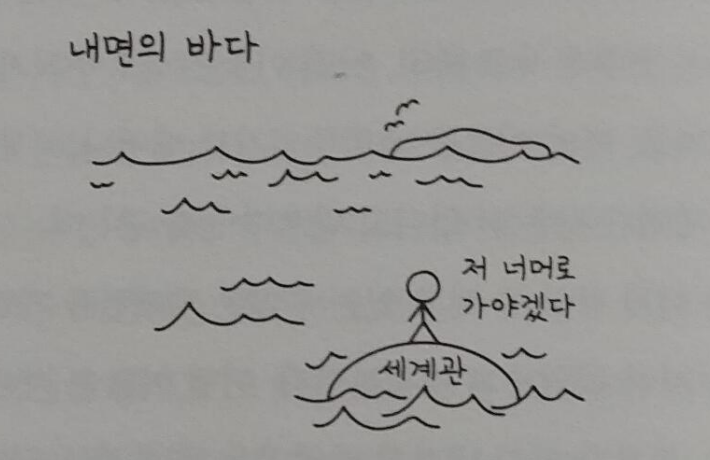 내면의 바다
저 너머로
가야겠다
세계관